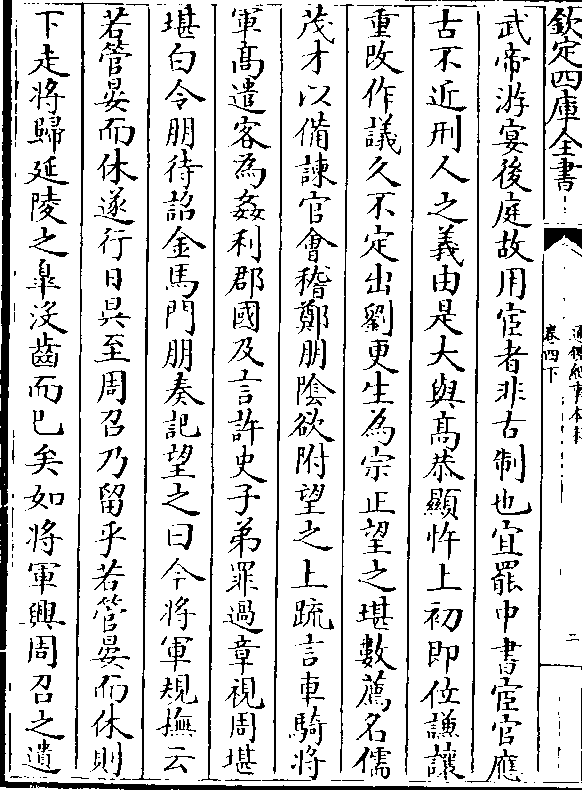 欽定四庫全書
通鑑紀事本末
卷四下
二
武帝游宴後庭故用宦者非古制也宜罷中書宦官應
古不近刑人之義由是大與髙恭顯忤上初即位謙讓
重改作議久不定出劉更生為宗正望之堪數薦名儒
茂才以備諫官會稽鄭朋隂欲附望之上疏言車騎將
軍髙遣客為姦利郡國及言許史子弟罪過章視周堪
堪白令朋待詔金馬門朋奏記望之曰今將軍規撫云
若管晏而休遂行日昃至周召乃留乎若管晏而休則
下走將歸延陵之臯沒齒而已矣如將軍興周召之遺